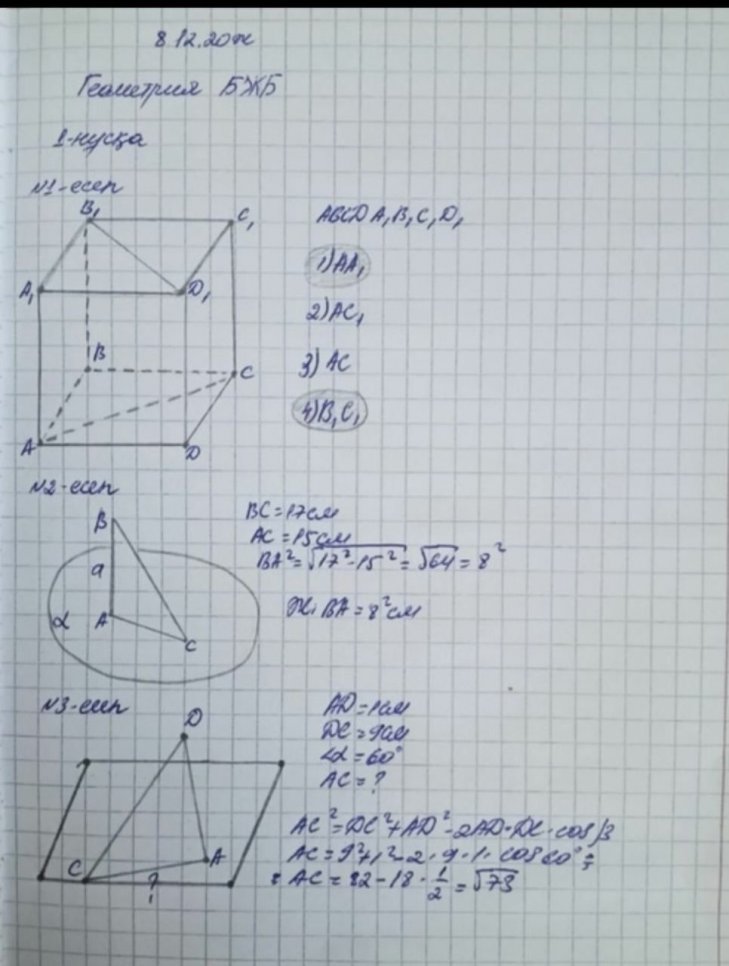 8.12.20ж
Геометрия БЖБ
1-нусқа
№1-есеп
B₁
C₁
A₁
D₁
B
C
A
D
ABCD A₁B₁C₁D₁
1) AA₁
2) AC₁
3) AC
4) B₁C₁
№2-есеп
B
a
α
A
C
BC=17см
AC=15см
BA²=√17²-15²=√64=8²
Ж: BA=8²см
№3-есеп
D
C
A
?
AD=1см
DC=9см
∠α=60°
AC=?
AC²=DC²+AD²-2AD·DC·cosβ
AC=9²+1²-2·9·1·cos60°=
=AC=82-18·1/2=√73